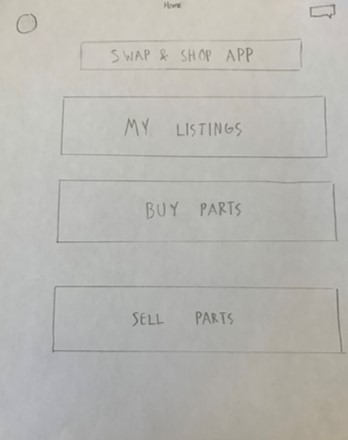 Home
SWAP & SHOP APP
MY LISTINGS
BUY PARTS
SELL PARTS